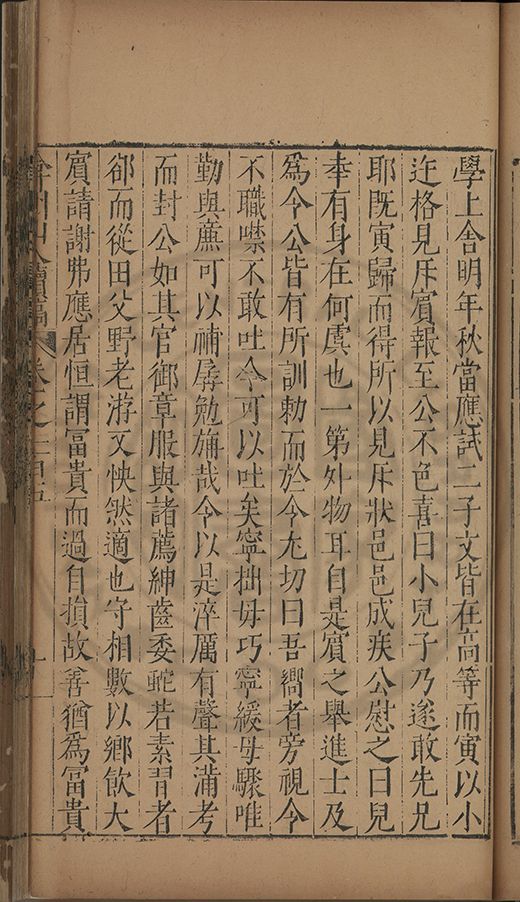 學上舍明年秋當應試二子文皆在高等而寅以小
迕格見斥賓報至公不色喜曰小兒子乃遂敢先兄
耶既寅歸而得所以見斥狀邑邑成疾公慰之曰兒
幸有身在何虞也一第外物耳自是賓之舉進士及
爲令公皆有所訓勅而於令尤切曰吾嚮者旁視令
不職噤不敢吐今可以吐矣寧拙毋巧寧緩毋驟唯
勤與㢘可以補孱勉旃哉令以是淬厲有聲其滿考
而封公如其官御章服與諸薦紳齒委蛇若素習者
郤而從田父野老游又怏然適也守相數以鄉飲大
賓請謝弗應居恒謂冨貴而過自損故善猶爲冨貴
弇州山人續稿 卷之